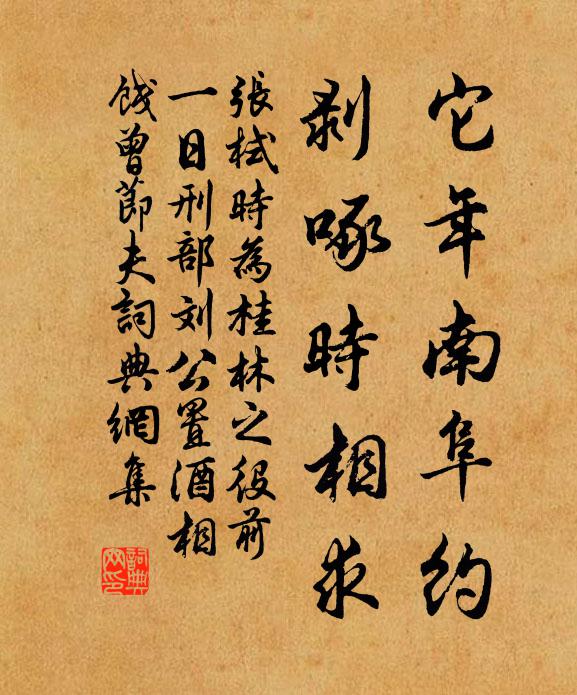 它年南阜約
剥啄時相求
張栻時為桂林之役前
一日刑部刘公置酒相
餞曾節夫詞典網集
詞典網印